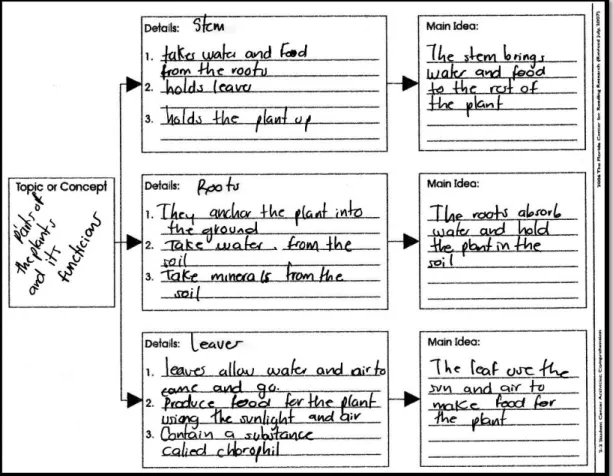 Details: Stem
1. takes water and food
from the roots
2. holds leaves
3. holds the plant up
Main Idea:
The stem brings
water and food
to the rest of
the plant
Topic or Concept
Parts of
the plants
and its
functicions
Details: Roots
1. They anchor the plant into
the ground
2. Take water. from the
soil
3. Take minerals from the
soil
Main Idea:
The roots absorb
water and hold
the plant in the
soil
Details: Leaves
1. leaves allow water and air to
come and go.
2. Produce foood for the plant
using the sunlight and air
3. Contain a substance
called chlorophil
Main Idea:
The leaf use the
sun and air to
make food for
the plant
2-3 Student Center Activities: Comprehension
The Florida Center for Reading Research (Revised July, 2007)